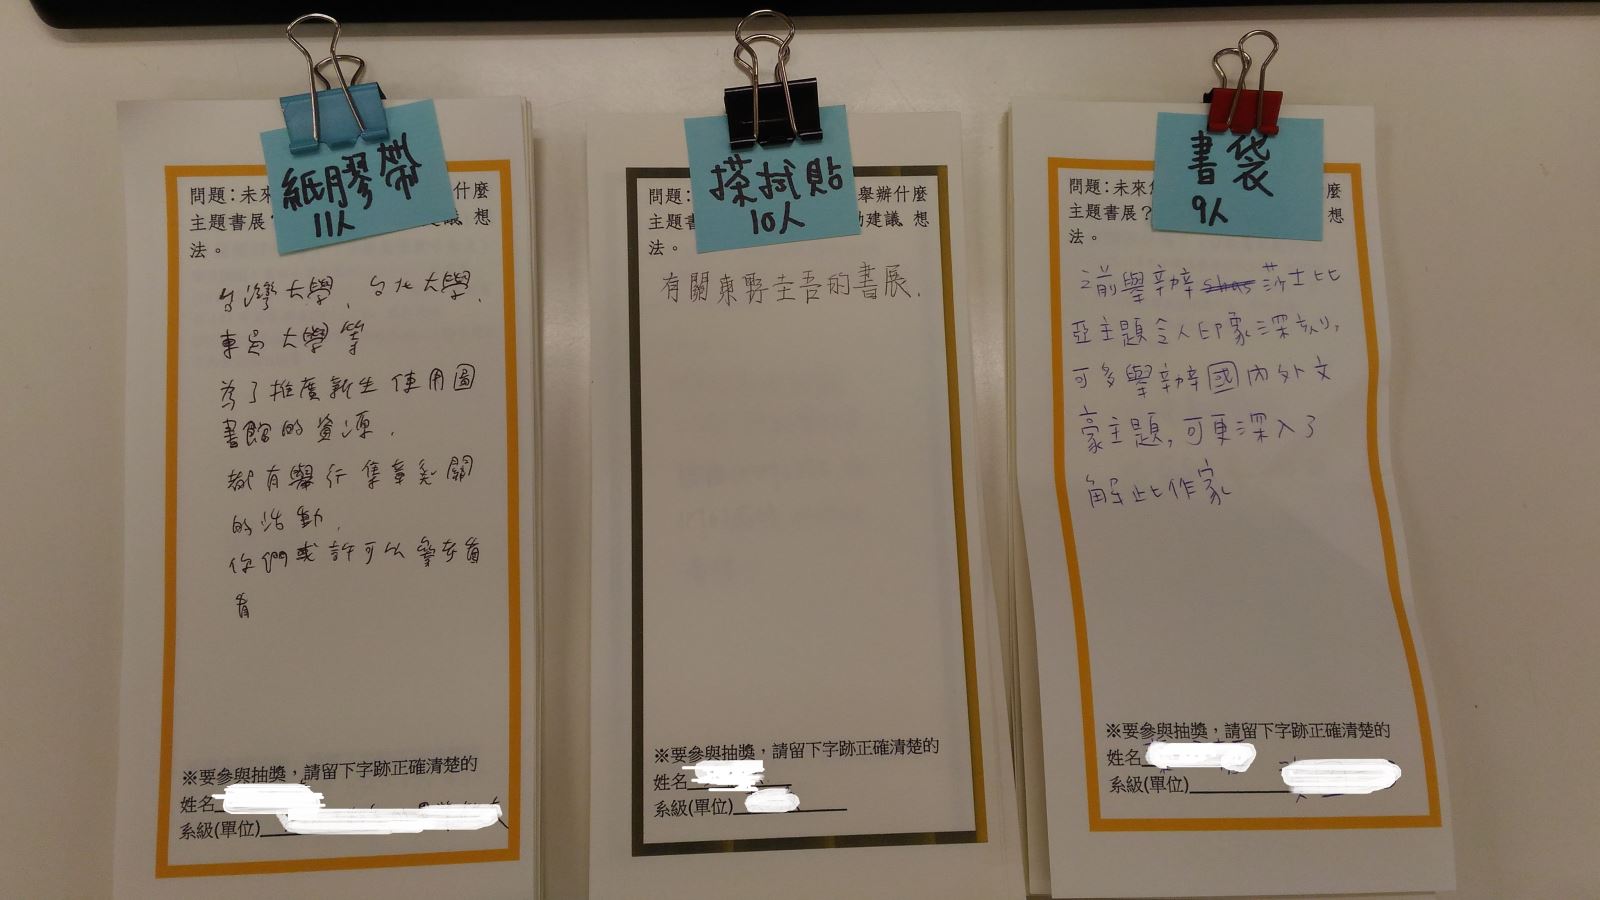 紙膠帶
11人
問題：未來
什麼
主題書展？
建議、想
法。
台灣大學、台北大學、
東吳大學等
為了推廣新生使用圖
書館的資源，
都有舉行集章闖關
的活動，
你們或許可以參考看
看
※要參與抽獎，請留下字跡正確清楚的
姓名
系級(單位)
擦拭貼
10人
問題：
舉辦什麼
主題書展？
建議、想
法。
有關東野圭吾的書展，
※要參與抽獎，請留下字跡正確清楚的
姓名
系級(單位)
書袋
9人
問題：未來
什麼
主題書展？
想
法。
之前舉辦shas莎士比
亞主題令人印象深刻，
可多舉辦國內外文
豪主題，可更深入了
解此作家
※要參與抽獎，請留下字跡正確清楚的
姓名
系級(單位)